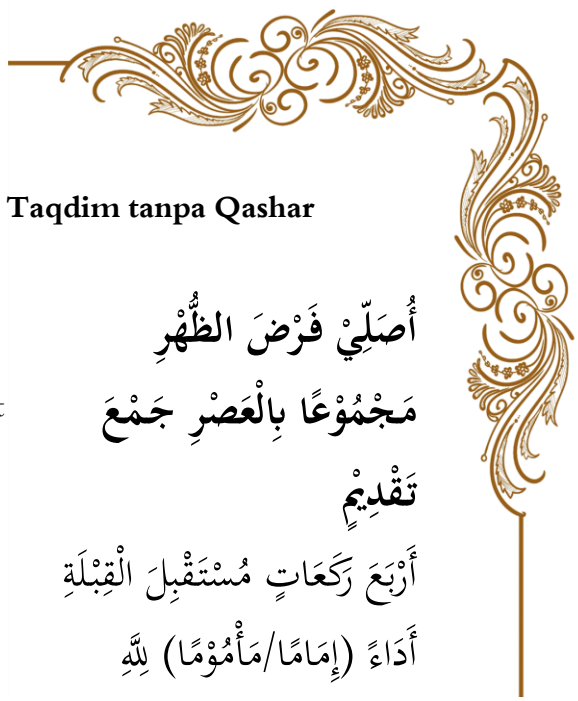 Taqdim tanpa Qashar
أُصَلِّيْ فَرْضَ الظُّهْرِ
مَجْمُوْعًا بِالْعَصْرِ جَمْعَ
تَقْدِيْمٍ
أَرْبَعَ رَكَعَاتٍ مُسْتَقْبِلَ الْقِبْلَةِ
أَدَاءً (إِمَامًا/مَأْمُوْمًا) لِلَّهِ